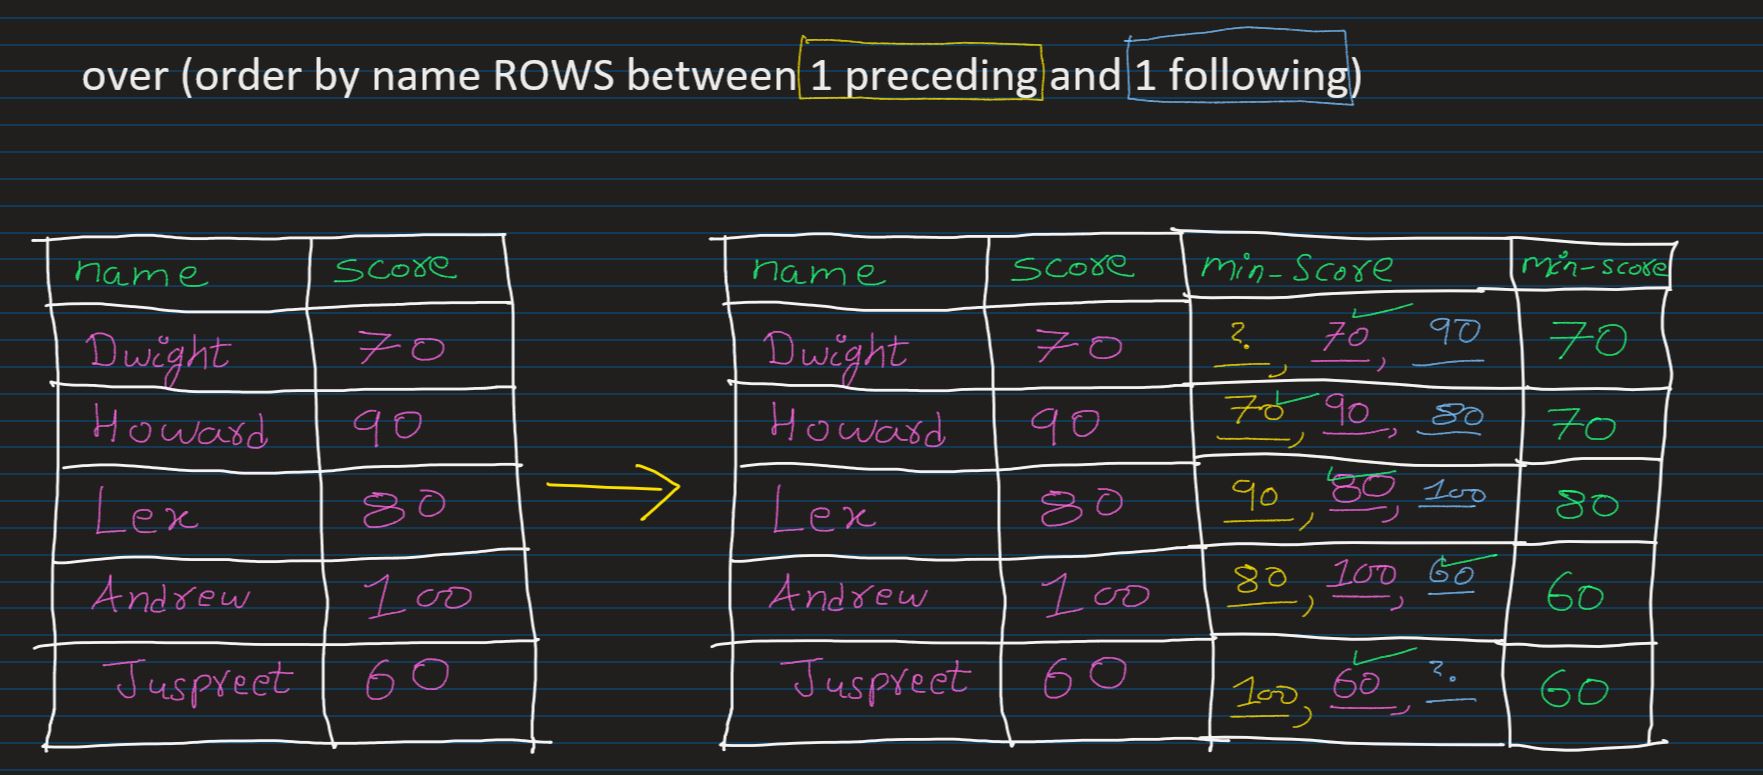 over (order by name ROWS between 1 preceding and 1 following)
name score
Dwight 70
Howard 90
Lex 80
Andrew 100
Juspreet 60
name score min-score min-score
Dwight 70 ?, 70, 90 70
Howard 90 70, 90, 80 70
Lex 80 90, 80, 100 80
Andrew 100 80, 100, 60 60
Juspreet 60 100, 60, ? 60